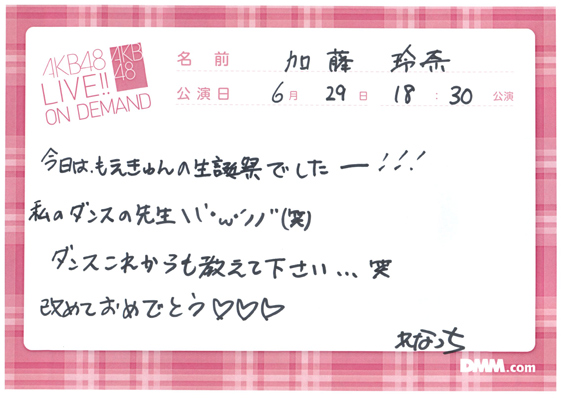 AKB48
LIVE!!
ON DEMAND
AKB
48
名前 加藤 玲奈
公演日 6月 29日 18:30 公演
今日は、もえきゅんの生誕祭でしたー!!!
私のダンスの先生\\\`・ω・´///(笑)
ダンスこれからも教えて下さい...笑
改めておめでとう♡♡♡
れなっち
DMM.com